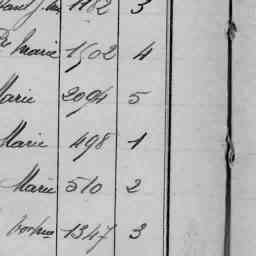 1182 3
Marie 1502 4
Marie 2094 5
Marie 498 1
Marie 510 2
1347 3